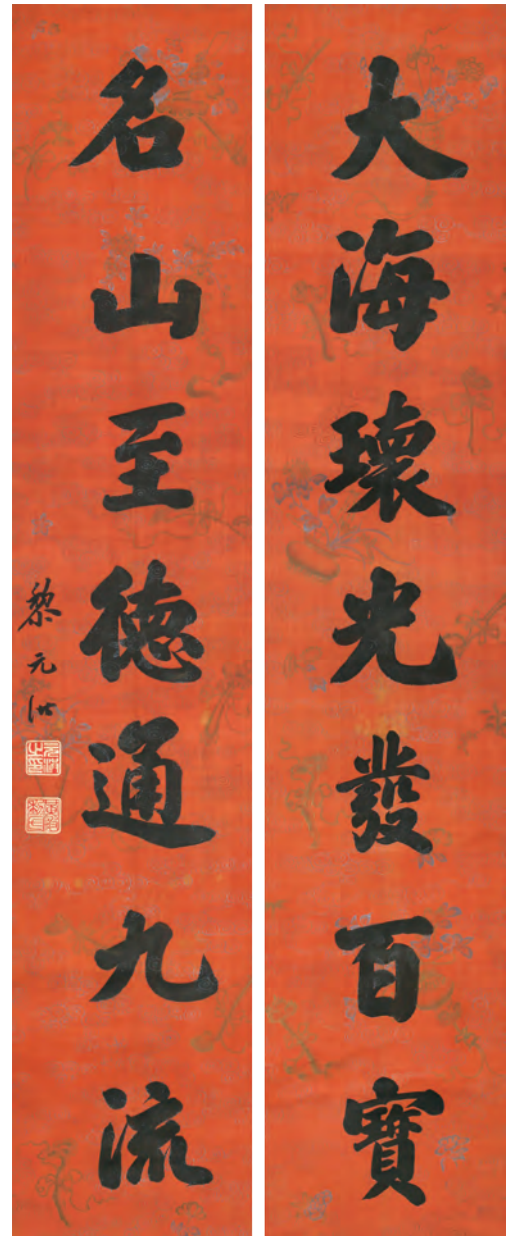 大海瓌光發百寶
名山至德通九流
黎元洪